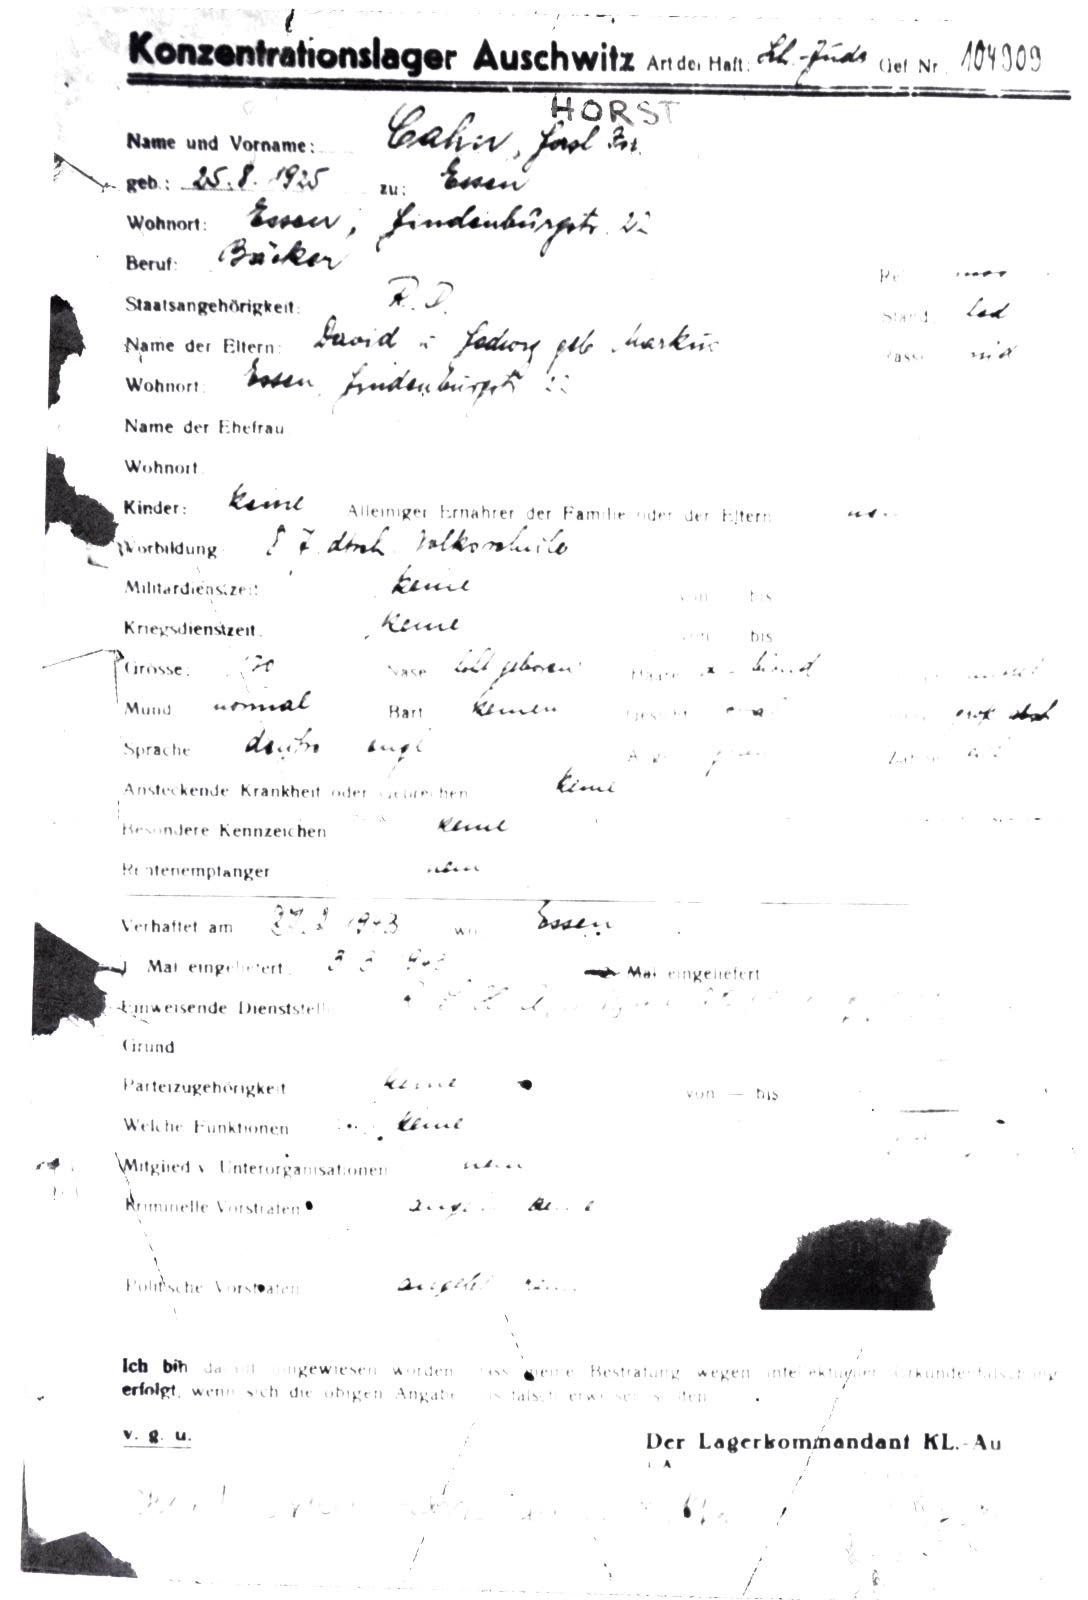 Konzentrationslager Auschwitz Art der Haft: Sch.-Jude Gef. Nr. 104909
HORST
Name und Vorname: Cahn, Horst Isr.
geb.: 25.8.1925 zu: Essen
Wohnort: Essen, Hindenburgstr. 22
Beruf: Bäcker Rel. mos
Staatsangehörigkeit: R.D. Stand: led
Name der Eltern: David u Hedwig geb Markus Rasse: jüd
Wohnort: Essen, Hindenburgstr 22
Name der Ehefrau
Wohnort
Kinder: keine Alleiniger Ernährer der Familie oder der Eltern
Vorbildung: 8 J. dtsch. Volksschule
Militärdienstzeit: keine von bis
Kriegsdienstzeit: keine von bis
Grösse: 170 Nase Haare blond
Mund normal Bart keinen Gesicht oval
Sprache deutsch engl
Ansteckende Krankheit oder Gebrechen keine
Besondere Kennzeichen keine
Rentenempfänger nein
Verhaftet am 27.2.1943 wo Essen
1 Mal eingeliefert: 3 3 1943 Mal eingeliefert
Einweisende Dienststelle
Grund
Parteizugehörigkeit keine von – bis
Welche Funktionen keine
Mitglied v. Unterorganisationen nein
Kriminelle Vorstrafen angebl keine
Politische Vorstrafen angebl keine
Ich bin darauf hingewiesen worden, dass meine Bestrafung wegen intellektueller Urkundenfälschung
erfolgt, wenn sich die obigen Angaben als falsch erweisen sollten.
v. g. u. Der Lagerkommandant KL.-Au
i A